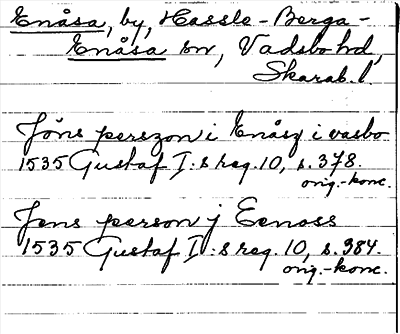 Enåsa, by, Hassle-Berga-
Enåsa sn, Vadsbo hd,
Skarab. l.
Jöns perszon i Enåsz i vasbo
1535 Gustaf I:s reg. 10, s. 378.
orig.-konc.
Jens person j Eenoss
1535 Gustaf I:s reg. 10, s. 384.
orig.-konc.